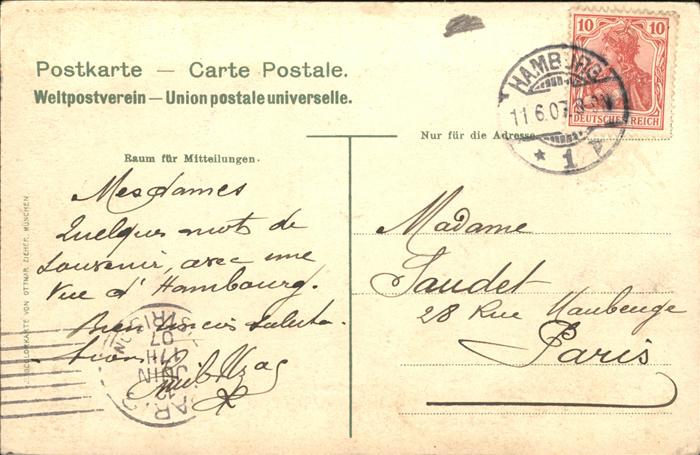 Postkarte — Carte Postale.
Weltpostverein — Union postale universelle.
10 10
DEUTSCHES REICH
HAMBURG
11.6.07. 8-9N
* 1
Nur für die Adresse
Raum für Mitteilungen.
Mesdames
Quelques mots de
souvenir, avec une
vue d'Hambourg.
Bien sincères saluta-
tions
Madame
Saudet
28 Rue Maubeuge
Paris
VON OTTMAR ZIEHER, MÜNCHEN
PARIS
12
JUIN
17H
07
DISTRIBUTION